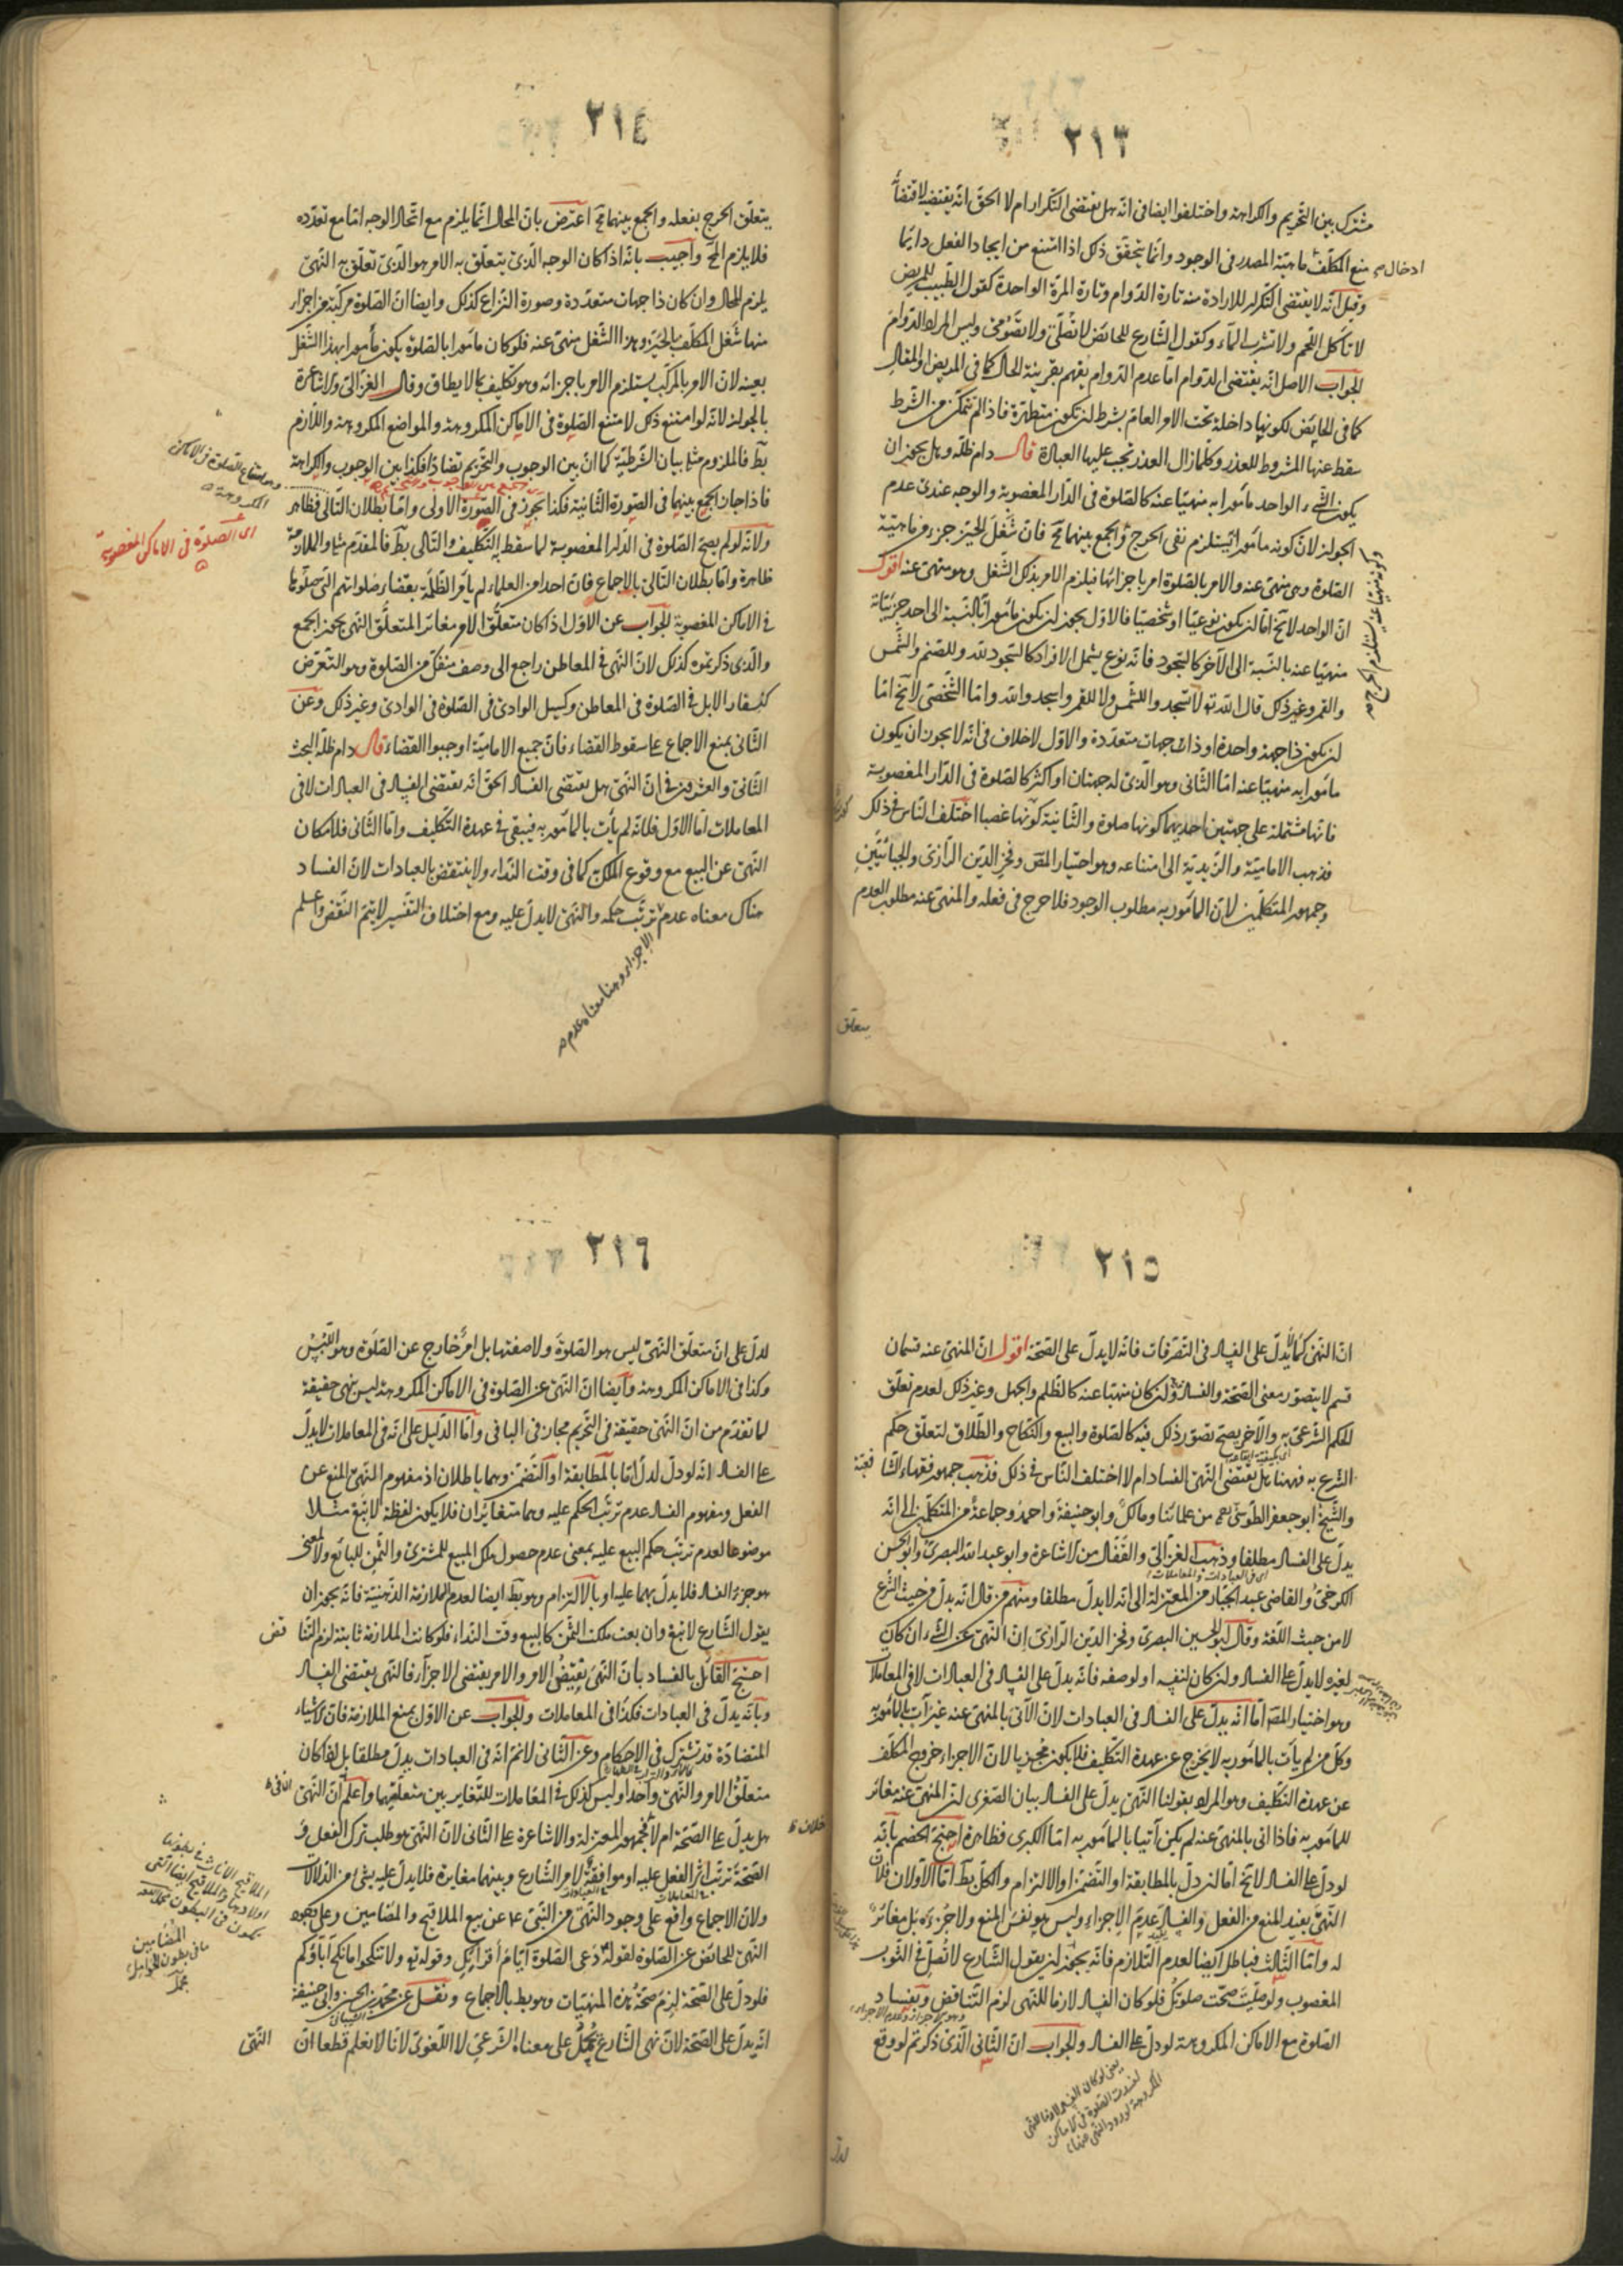 ٢١٣
مشترك بين التحريم والكراهة واختلفوا ايضا فى انّه هل يقتضى التكرار ام لا الحق انّه يقتضيه لاقتضائه
منع المكلّف ماهيّة المصدر فى الوجود وانّما يتحقّق ذلك اذا امتنع من ايجاد الفعل دايمًا
ادخال
وقيل انّه لا يقتضى التكرار للارادة منه تارة الدّوام وتارة المرّة الواحدة كقول الطّبيب للمريض
لا تأكل اللّحم ولا تشرب الماء وكقول الشّارع للحائض لا تُصلّى ولا تصومى وليس المراد الدّوام
الجواب الاصل انّه يقتضى الدوام امّا عدم الدّوام يفهم بقرينة الحال كما فى المريض او المقال
كما فى الحائض لكونها داخلة تحت الامر العامّ بشرط ان تكون متطهّرة فاذا لم تتمكّن من الشرط
سقط عنها المشروط للعذر وكلّما زال العذر تجب عليها العبادة قال دام ظلّه وهل يجوز ان
يكون الشّىء الواحد مأمورا به منهيّا عنه كالصّلوة فى الدّار المغصوبة والوجه عندى عدم
الجواز لانّ كونه مأمورا يستلزم نفى الحرج والجمع بينهما مح فانّ شَغْلَ الحيّز جزء من ماهيّة
وكونه منهيّا عنه يستلزم الحرج
الصّلوة وهى منهىّ عنه والامر بالصّلوة امر باجزائها فيلزم الامر بذلك الشّغل وهو منهىّ عنه اقول
انّ الواحد لا يخ امّا ان يكون نوعيّا او شخصيّا فالاوّل يجوز ان يكون مأمورا بالنّسبة الى احد جزئيّاته
منهيّا عنه بالنّسبة الى الآخر كالسّجود فانّه نوع يشمل الافراد كالسّجود لله وللصّنم والشّمس
والقمر وغير ذلك قال الله تع لا تسجدوا للشّمس ولا للقمر واسجدوا لله وامّا الشّخصىّ لا يخ امّا
ان يكون ذا جهة واحدة او ذات جهات متعدّدة والاوّل لا خلاف فى انّه لا يجوز ان يكون
مأمورا به منهيّا عنه امّا الثّانى وهو الّذى له جهتان او اكثر كالصّلوة فى الدّار المغصوبة
فانّها مشتملة على جهتين احديهما كونها صلوة والثّانية كونها غصبا اختلف النّاس فى ذلك
فذهب الاماميّة والزّيديّة الى امتناعه وهو اختيار المص وفخر الدّين الرّازى والجبائيّين
وجمهور المتكلّمين لانّ المأمور به مطلوب الوجود فلا حرج فى فعله والمنهىّ عنه مطلوب العدم
يتعلق
٢١٤
يتعلّق الحرج بفعله والجمع بينهما مح اعترض بانّ المحال انّما يلزم مع اتّحاد الوجه امّا مع تعدّده
فلا يلزم المح واجيب بانّه اذا كان الوجه الّذى يتعلّق به الامر هو الّذى تعلّق به النّهى
يلزم المحال وان كان ذا جهات متعدّدة وصورة النّزاع كذلك وايضا انّ الصّلوة مركّبة من اجزاء
منها شَغل المكلّف الحيّز وهذا الشّغل منهىّ عنه فلو كان مأمورا بالصّلوة يكون مأمورا بهذا الشّغل
بعينه لانّ الامر بالمركّب يستلزم الامر باجزائه وهو تكليف بما لا يطاق وقال الغزالى والاشاعرة
بالجواز لانّه لو امتنع ذلك لامتنع الصّلوة فى الاماكن المكروهة والمواضع المكروهة واللازم
بط فالملزوم مثله بيان الشّرطيّة كما انّ بين الوجوب والتّحريم تضادّا فكذا بين الوجوب والكراهة
وهو امتناع الصلوة فى الاماكن
المكروهة
فاذا جاز الجمع بينهما فى الصّورة الثّانية فكذا يجوز فى الصّورة الاولى وامّا بطلان التّالى فظاهر
ولانّه لو لم يصح الصّلوة فى الدّار المغصوبة لما سقط به التّكليف والتّالى بط فالمقدّم مثله والملازمة
اى الصّلوة فى الاماكن المغصوبة
ظاهرة وامّا بطلان التّالى بالاجماع فانّ احدا من العلماء لم يأمر الظّلمة بقضاء صلواتهم الّتى صلّوها
فى الاماكن المغصوبة الجواب عن الاوّل اذا كان متعلّق الامر مغائر المتعلّق النّهى يجوز الجمع
والّذى ذكرتموه كذلك لانّ النّهى فى المعاطن راجع الى وصف منفكّ من الصّلوة وهو التّعرّض
كنِفار الابل فى الصّلوة فى المعاطن وكسيل الوادى فى الصّلوة فى الوادى وغير ذلك وعن
الثّانى بمنع الاجماع على سقوط القضاء فانّ جميع الاماميّة اوجبوا القضاء قال دام ظلّه البحث
الثّانى والعشرون فى انّ النّهى هل يقتضى الفساد الحقّ انّه يقتضى الفساد فى العبادات لا فى
المعاملات امّا الاوّل فلانّه لم يأت بالمأمور به فيبقى فى عهدة التّكليف وامّا الثّانى فلامكان
النّهى عن البيع مع وقوع الملك كما فى وقت النّداء ولا ينتقض بالعبادات لانّ الفساد
هناك معناه عدم ترتّب حكمه والنّهى لا يدلّ عليه ومع اختلاف التّفسير لا يتمّ النّقض واعلم
الاجزاء وهنا معناه عدم
٢١٥
انّ النّهى كما لا يدلّ على الفساد فى التّصرّفات فانّه لا يدلّ على الصّحة اقول انّ المنهىّ عنه قسمان
قسم لا يتصوّر معنى الصّحّة والفساد فيه وان كان منهيّا عنه كالظّلم والجهل وغير ذلك لعدم تعلّق
الحكم الشّرعىّ به والآخر يصحّ تصوّر ذلك فيه كالصّلوة والبيع والنّكاح والطّلاق لتعلّق حكم
الشّرع به فههنا هل يقتضى النّهى الفساد ام لا اختلف النّاس فى ذلك فذهب جمهور فقهاء الشّافعيّة
والشّيخ ابو جعفر الطّوسى من علمائنا ومالك وابو حنيفة واحمد وجماعة من المتكلّمين الى انّه
يدلّ على الفساد مطلقا وذهب الغزالى والقفّال من الاشاعرة وابو عبد الله البصرى وابو الحسن
اى فى العبادات والمعاملات
الكرخى والقاضى عبد الجبّار من المعتزلة الى انّه لا يدلّ مطلقا ومنهم من قال انّه يدلّ من حيث الشّرع
لا من حيث اللّغة وقال ابو الحسين البصرى وفخر الدّين الرّازى انّ النّهى عن الشّىء ان كان
لغيره لا يدلّ على الفساد وان كان لنفسه او لوصفه فانّه يدلّ على الفساد فى العبادات لا فى المعاملات
وهو اختيار المص امّا انّه يدلّ على الفساد فى العبادات لانّ الآتى بالمنهىّ عنه غير آت بالمأمور به
وكلّ من لم يأت بالمأمور به لا يخرج عن عهدة التّكليف فلا يكون مجزيا لانّ الاجزاء خروج المكلّف
عن عهدة التّكليف وهو المراد بقولنا النّهى يدلّ على الفساد بيان الصّغرى انّ المنهىّ عنه مغائر
للمأمور به فاذا اتى بالمنهىّ عنه لم يكن آتيا بالمأمور به امّا الكبرى فظاهرة احتجّ الخصم بانّه
لو دلّ على الفساد لا يخ امّا ان دلّ بالمطابقة او التّضمّن او الالتزام والكلّ بط امّا الاوّلان فلانّ
النّهى يفيد المنع من الفعل والفساد عدم الاجزاء وليس هو نفس المنع ولا جزءه بل مغائر
له وامّا الثّالث فباطل ايضا لعدم التّلازم فانّه يجوز ان يقول الشّارع لا تصلّ فى الثّوب
المغصوب ولو صلّيت صحّت صلوتك فلو كان الفساد لازما للنّهى لزم التّناقض وبفساد
الصّلوة مع الاماكن المكروهة لو دلّ على الفساد والجواب انّ الثّانى الّذى ذكرتم لو وقع
يعنى لو كان الفساد لازما للنّهى
لفسدت الصّلوة فى الاماكن
المكروهة لورود النّهى عنها
لدل
٢١٦
لدلّ على انّ متعلّق النّهى ليس هو الصّلوة ولا صفتها بل امر خارج عن الصّلوة وهو اللّبس
وكذا فى الاماكن المكروهة وايضا انّ النّهى عن الصّلوة فى الاماكن المكروهة ليس نهى حقيقة
لما تقدّم من انّ النّهى حقيقة فى التّحريم مجاز فى الباقى وامّا الدّليل على انّه فى المعاملات لا يدلّ
على الفساد انّه لو دلّ لدلّ امّا بالمطابقة او التّضمّن وهما باطلان اذ مفهوم النّهى المنع عن
الفعل ومفهوم الفساد عدم ترتّب الحكم عليه وهما متغائران فلا يكون لفظة لا تبع مثلا
موضوعا لعدم ترتّب حكم البيع عليه بمعنى عدم حصول ملك المبيع للمشترى والثّمن للبائع ولا لمعنى
هو جزء الفساد فلا يدلّ بهما عليه او بالالتزام وهو بط ايضا لعدم الملازمة الذّهنيّة فانّه يجوز ان
يقول الشّارع لا تبع وان بعت ملكت الثّمن كالبيع وقت النّداء فلو كانت الملازمة ثابتة لزم التّناقض
احتجّ القائل بالفساد بانّ النّهى نقيض الامر والامر يقتضى الاجزاء فالنّهى يقتضى الفساد
وبانّه يدلّ فى العبادات فكذا فى المعاملات والجواب عن الاوّل بمنع الملازمة فانّ الاشياء
المتضادّة قد تشترك فى الاحكام وعن الثّانى لا نم انّه فى العبادات يدلّ مطلقا بل اذا كان
متعلّق الامر والنّهى واحدا وليس كذلك فى المعاملات للتّغاير بين متعلّقيهما واعلم انّ النّهى
هل يدلّ على الصّحّة ام لا فجمهور المعتزلة والاشاعرة على الثّانى لانّ النّهى هو طلب ترك الفعل و
الصّحّة ترتّب اثر الفعل عليه او موافقة لامر الشّارع وبينهما مغايرة فلا يدلّ عليه بشىء من الدّلالات
ولانّ الاجماع واقع على وجود النّهى من النّبىّ ع عن بيع الملاقيح والمضامين وعلى وجود
النّهى للحائض عن الصّلوة لقوله دعى الصّلوة ايّام أقرائك وقوله تع ولا تنكحوا ما نكح آباؤكم
فلو دلّ على الصّحّة لزم صحّة هذه المنهيّات وهو بط بالاجماع ونقل عن محمّد بن الحسن وابى حنيفة
انّه يدلّ على الصّحّة لانّ نهى الشّارع يحمل على معناه الشّرعىّ لا اللّغوىّ لانّا لا نعلم قطعا انّ النّهى
المضامين